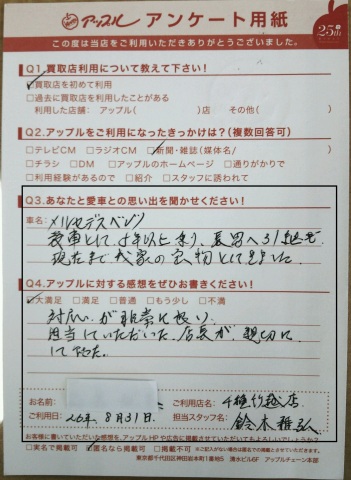 アップル アンケート用紙
25th
この度は当店をご利用いただきありがとうございました。
Q1.買取店利用について教えて下さい!
☑買取店を初めて利用
□過去に買取店を利用したことがある
利用した店舗:アップル( )店 その他( )
Q2.アップルをご利用になったきっかけは?(複数回答可)
□テレビCM □ラジオCM ☑新聞・雑誌(媒体名/ )
□チラシ □DM □アップルのホームページ □通りがかりで
□利用経験があるので □紹介 □スタッフに誘われて
Q3.あなたと愛車との思い出を聞かせください!
車名: メルセデスベンツ
愛車として、5年以上乗り、長男へ引継ぎ
現在まで我家の宝物として
Q4.アップルに対する感想をぜひお書きください!
☑大満足 □満足 □普通 □もう少し □不満
対応が非常に良い
担当していただいた店長が、親切に
して下さった。
お名前: ご利用店名: 千種竹越店
ご利用日: 26年 8月31日. 担当スタッフ名: 鈴木雅弘
お客様に書いていただいな感想を、アップルHPや広告に掲載させていただいてもよろしいでしょうか?
□実名で掲載可 ☑匿名なら掲載可 □掲載不可 ※ご記入がない場合は匿名での掲載とさせていただきます。
東京都千代田区神田岩本町1番地5 清水ビル6F アップルチェーン本部